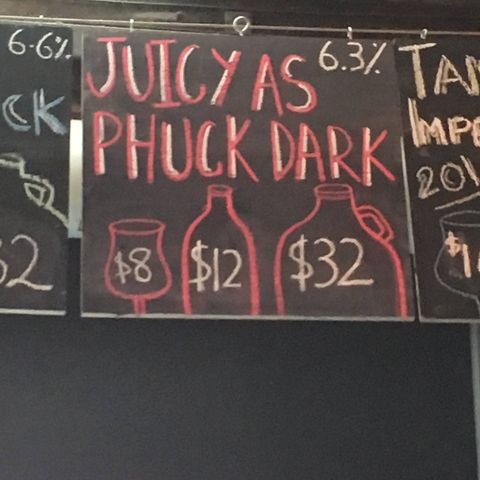 6.6%
CK
JUICY AS
6.3%
PHUCK DARK
$8
$12
$32
TA
IMPE
201